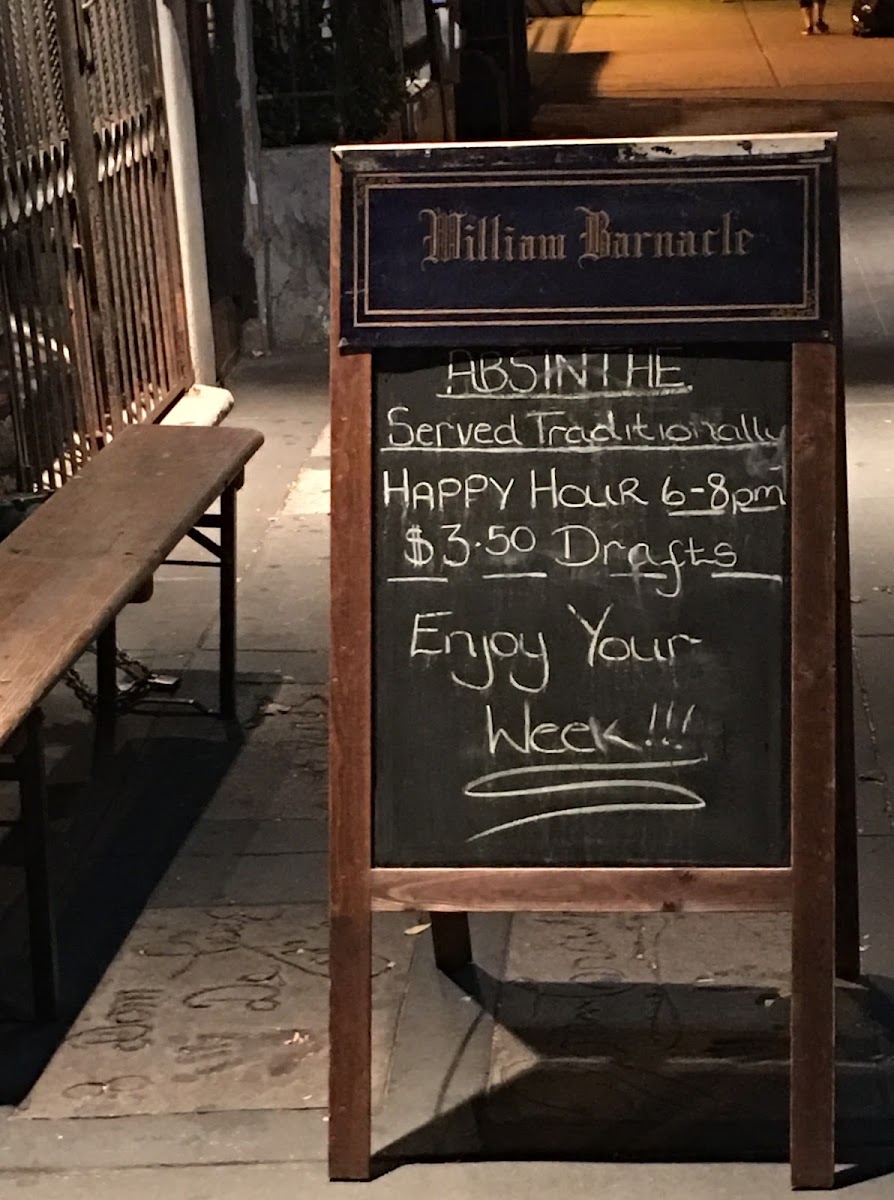 William Barnacle
ABSINTHE
Served Traditionally
HAPPY HOUR 6-8pm
$3.50 Drafts
Enjoy Your
Week!!!